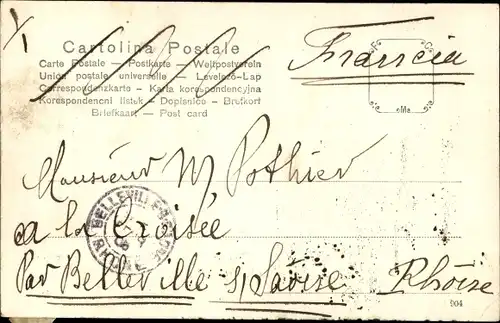 1/1
Cartolina Postale
Francia
Carte Postale — Postkarte — Weltpostverein
Union postale universelle — Levelezö-Lap
Correspondenzkarte — Karta korespondencyjna
Korespondencni listek — Dopisnice — Brefkort
Briefkaart — Post card
Monsieur M Pothier
a la Croisée
Par Belleville s/Saône Rhône
BELLEVILLE
904